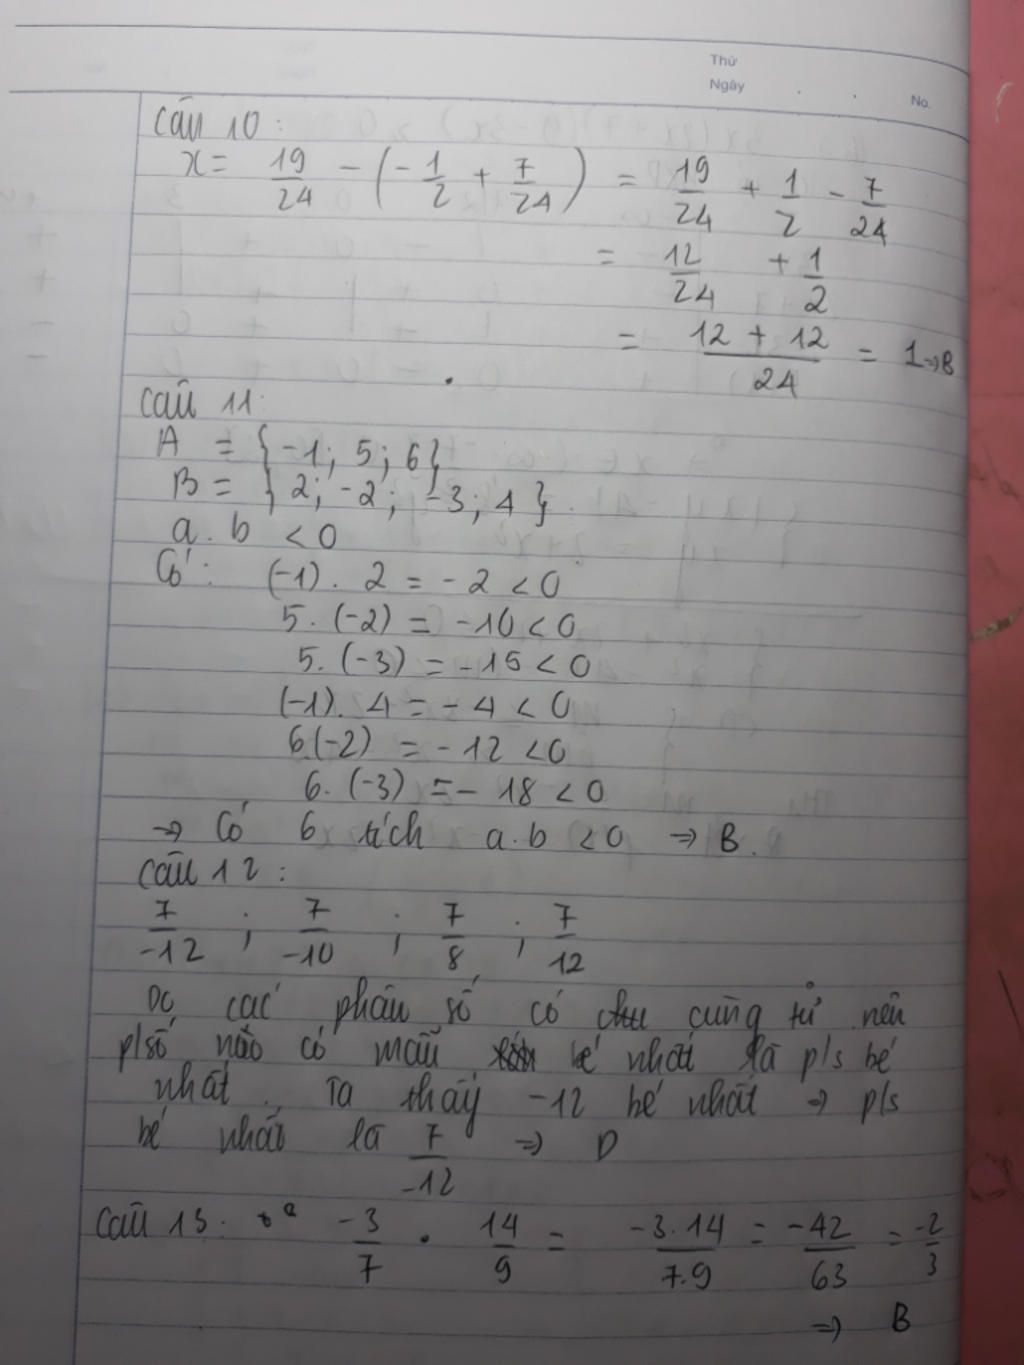 Thứ
Ngày
No.
Câu 10:
x = 19/24 - (-1/2 + 7/24) = 19/24 + 1/2 - 7/24
= 12/24 + 1/2
= (12 + 12)/24 = 1 → B
Câu 11:
A = {-1; 5; 6}
B = {2; -2; -3; 4}.
a.b < 0
Có: (-1). 2 = -2 < 0
5. (-2) = -10 < 0
5. (-3) = -15 < 0
(-1). 4 = -4 < 0
6.(-2) = -12 < 0
6. (-3) = -18 < 0
→ Có 6 tích a.b < 0 → B.
Câu 12:
7/-12 ; 7/-10 ; 7/8 ; 7/12
Do các phân số có cùng tử nên
p/số nào có mẫu bé nhất là p/s bé
nhất. Ta thấy -12 bé nhất → p/s
bé nhất là 7/-12 → D
Câu 13: -3/7 . 14/9 = -3.14/7.9 = -42/63 = -2/3
→ B